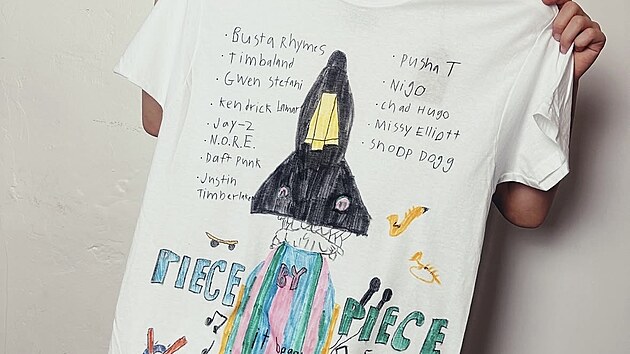 · Busta Rhymes
· Timbaland
· Gwen Stefani
· Kendrick Lamar
· Jay-Z
· N.O.R.E.
· Daft Punk
· Justin
Timberlake
· Pusha T
· Nigo
· Chad Hugo
· Missy Elliott
· Snoop Dogg
PIECE
BY
PIECE